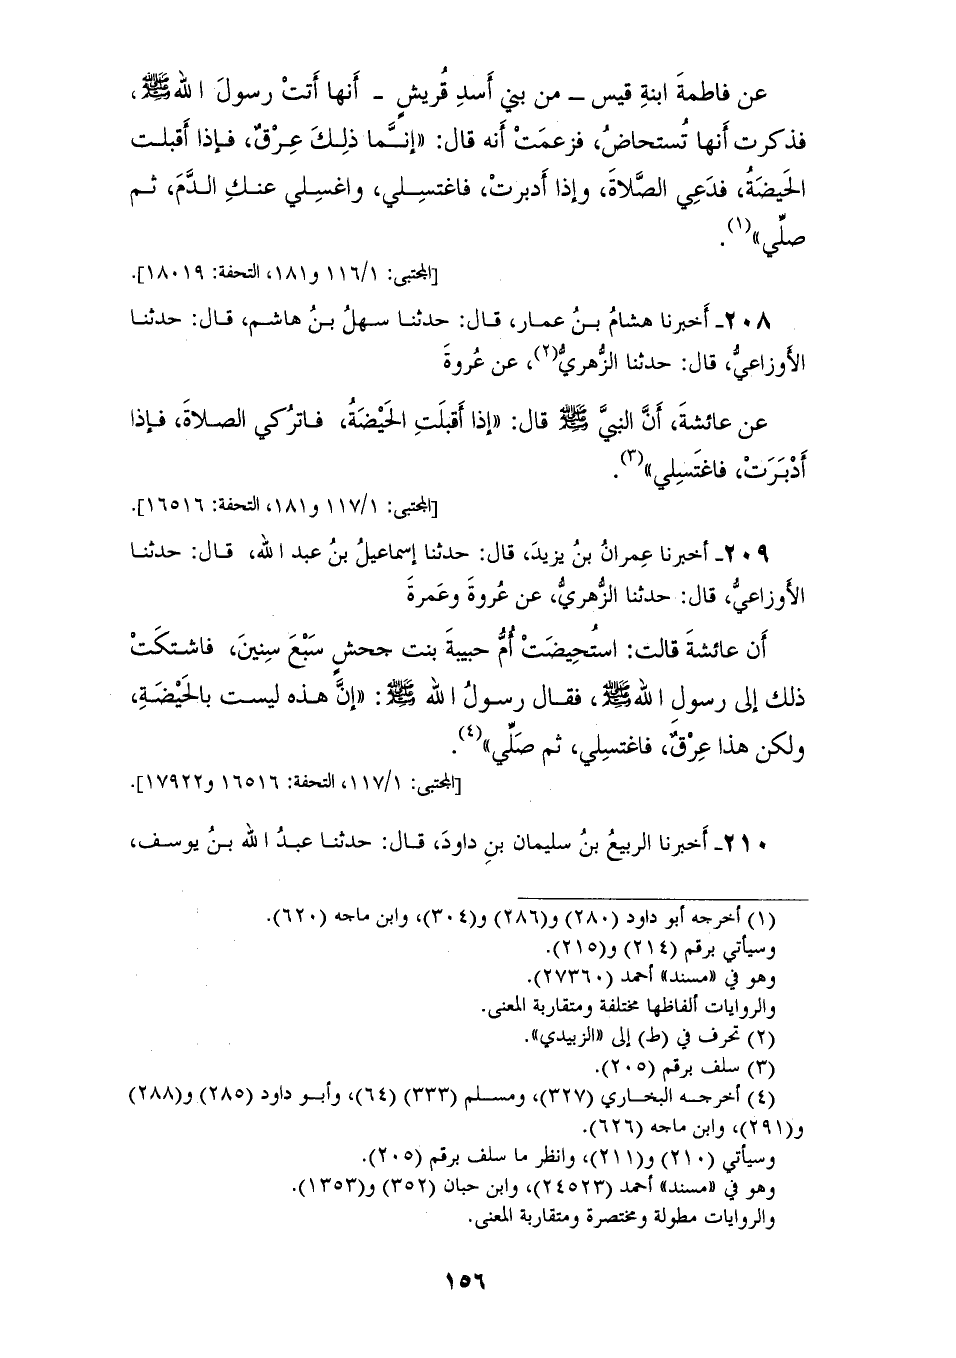 عن فاطمةَ ابنةِ قيس – من بني أَسدِ قُريشٍ - أَنها أَتتْ رسولَ اللهﷺ،
فذكرت أَنها تُستحاضُ، فزعمَتْ أَنه قال: «إنَّما ذلِكَ عِرْقٌ، فإذا أَقبلت
الحَيضَةُ، فدَعِي الصَّلاةَ، وإذا أَدبرتْ، فاغتسِلي، واغسِلي عنكِ الدَّمَ، ثم
صلِّي»(١).
[المجتبى: ١١٦/١ و١٨١، التحفة: ١٨٠١٩].
٢٠٨ـ أَخبرنا هشامُ بنُ عمار، قال: حدثنا سهلُ بنُ هاشم، قال: حدثنا
الأَوزاعيُّ، قال: حدثنا الزُّهريُّ(٢)، عن عُروةَ
عن عائشةَ، أَنَّ النبيَّ ﷺ قال: «إذا أَقبَلَتِ الحَيْضَةُ، فاترُكي الصلاةَ، فإذا
أَدْبَرَتْ، فاغتَسِلي»(٣).
[المجتبى: ١١٧/١ و١٨١، التحفة: ١٦٥١٦].
٢٠٩ـ أخبرنا عِمرانُ بنُ يزيدَ، قال: حدثنا إسماعيلُ بنُ عبد الله، قال: حدثنا
الأَوزاعيُّ، قال: حدثنا الزُّهريُّ، عن عُروةَ وعَمرةَ
أَن عائشةَ قالت: استُحِيضَتْ أُمُّ حبيبةَ بنت جحشٍ سَبْعَ سِنينَ، فاشتكَتْ
ذلك إلى رسولِ اللهﷺ، فقال رسولُ الله ﷺ: «إنَّ هذه ليست بالحَيْضَةِ،
ولكن هذا عِرْقٌ، فاغتسِلي، ثم صَلِّي»(٤).
[المجتبى: ١١٧/١، التحفة: ١٦٥١٦ و١٧٩٢٢].
٢١٠ـ أَخبرنا الربيعُ بنُ سليمان بنِ داودَ، قال: حدثنا عبدُ الله بنُ يوسف،
(١) أخرجه أبو داود (٢٨٠) و(٢٨٦) و(٣٠٤)، وابن ماجه (٦٢٠).
وسيأتي برقم (٢١٤) و(٢١٥).
وهو في «مسند» أحمد (٢٧٣٦٠).
والروايات ألفاظها مختلفة ومتقاربة المعنى.
(٢) تحرف في (ط) إلى «الزبيدي».
(٣) سلف برقم (٢٠٥).
(٤) أخرجه البخاري (٣٢٧)، ومسلم (٣٣٣) (٦٤)، وأبو داود (٢٨٥) و(٢٨٨)
و(٢٩١)، وابن ماجه (٦٢٦).
وسيأتي (٢١٠) و(٢١١)، وانظر ما سلف برقم (٢٠٥).
وهو في «مسند» أحمد (٢٤٥٢٣)، وابن حبان (٣٥٢) و(١٣٥٣).
والروايات مطولة ومختصرة ومتقاربة المعنى.
١٥٦